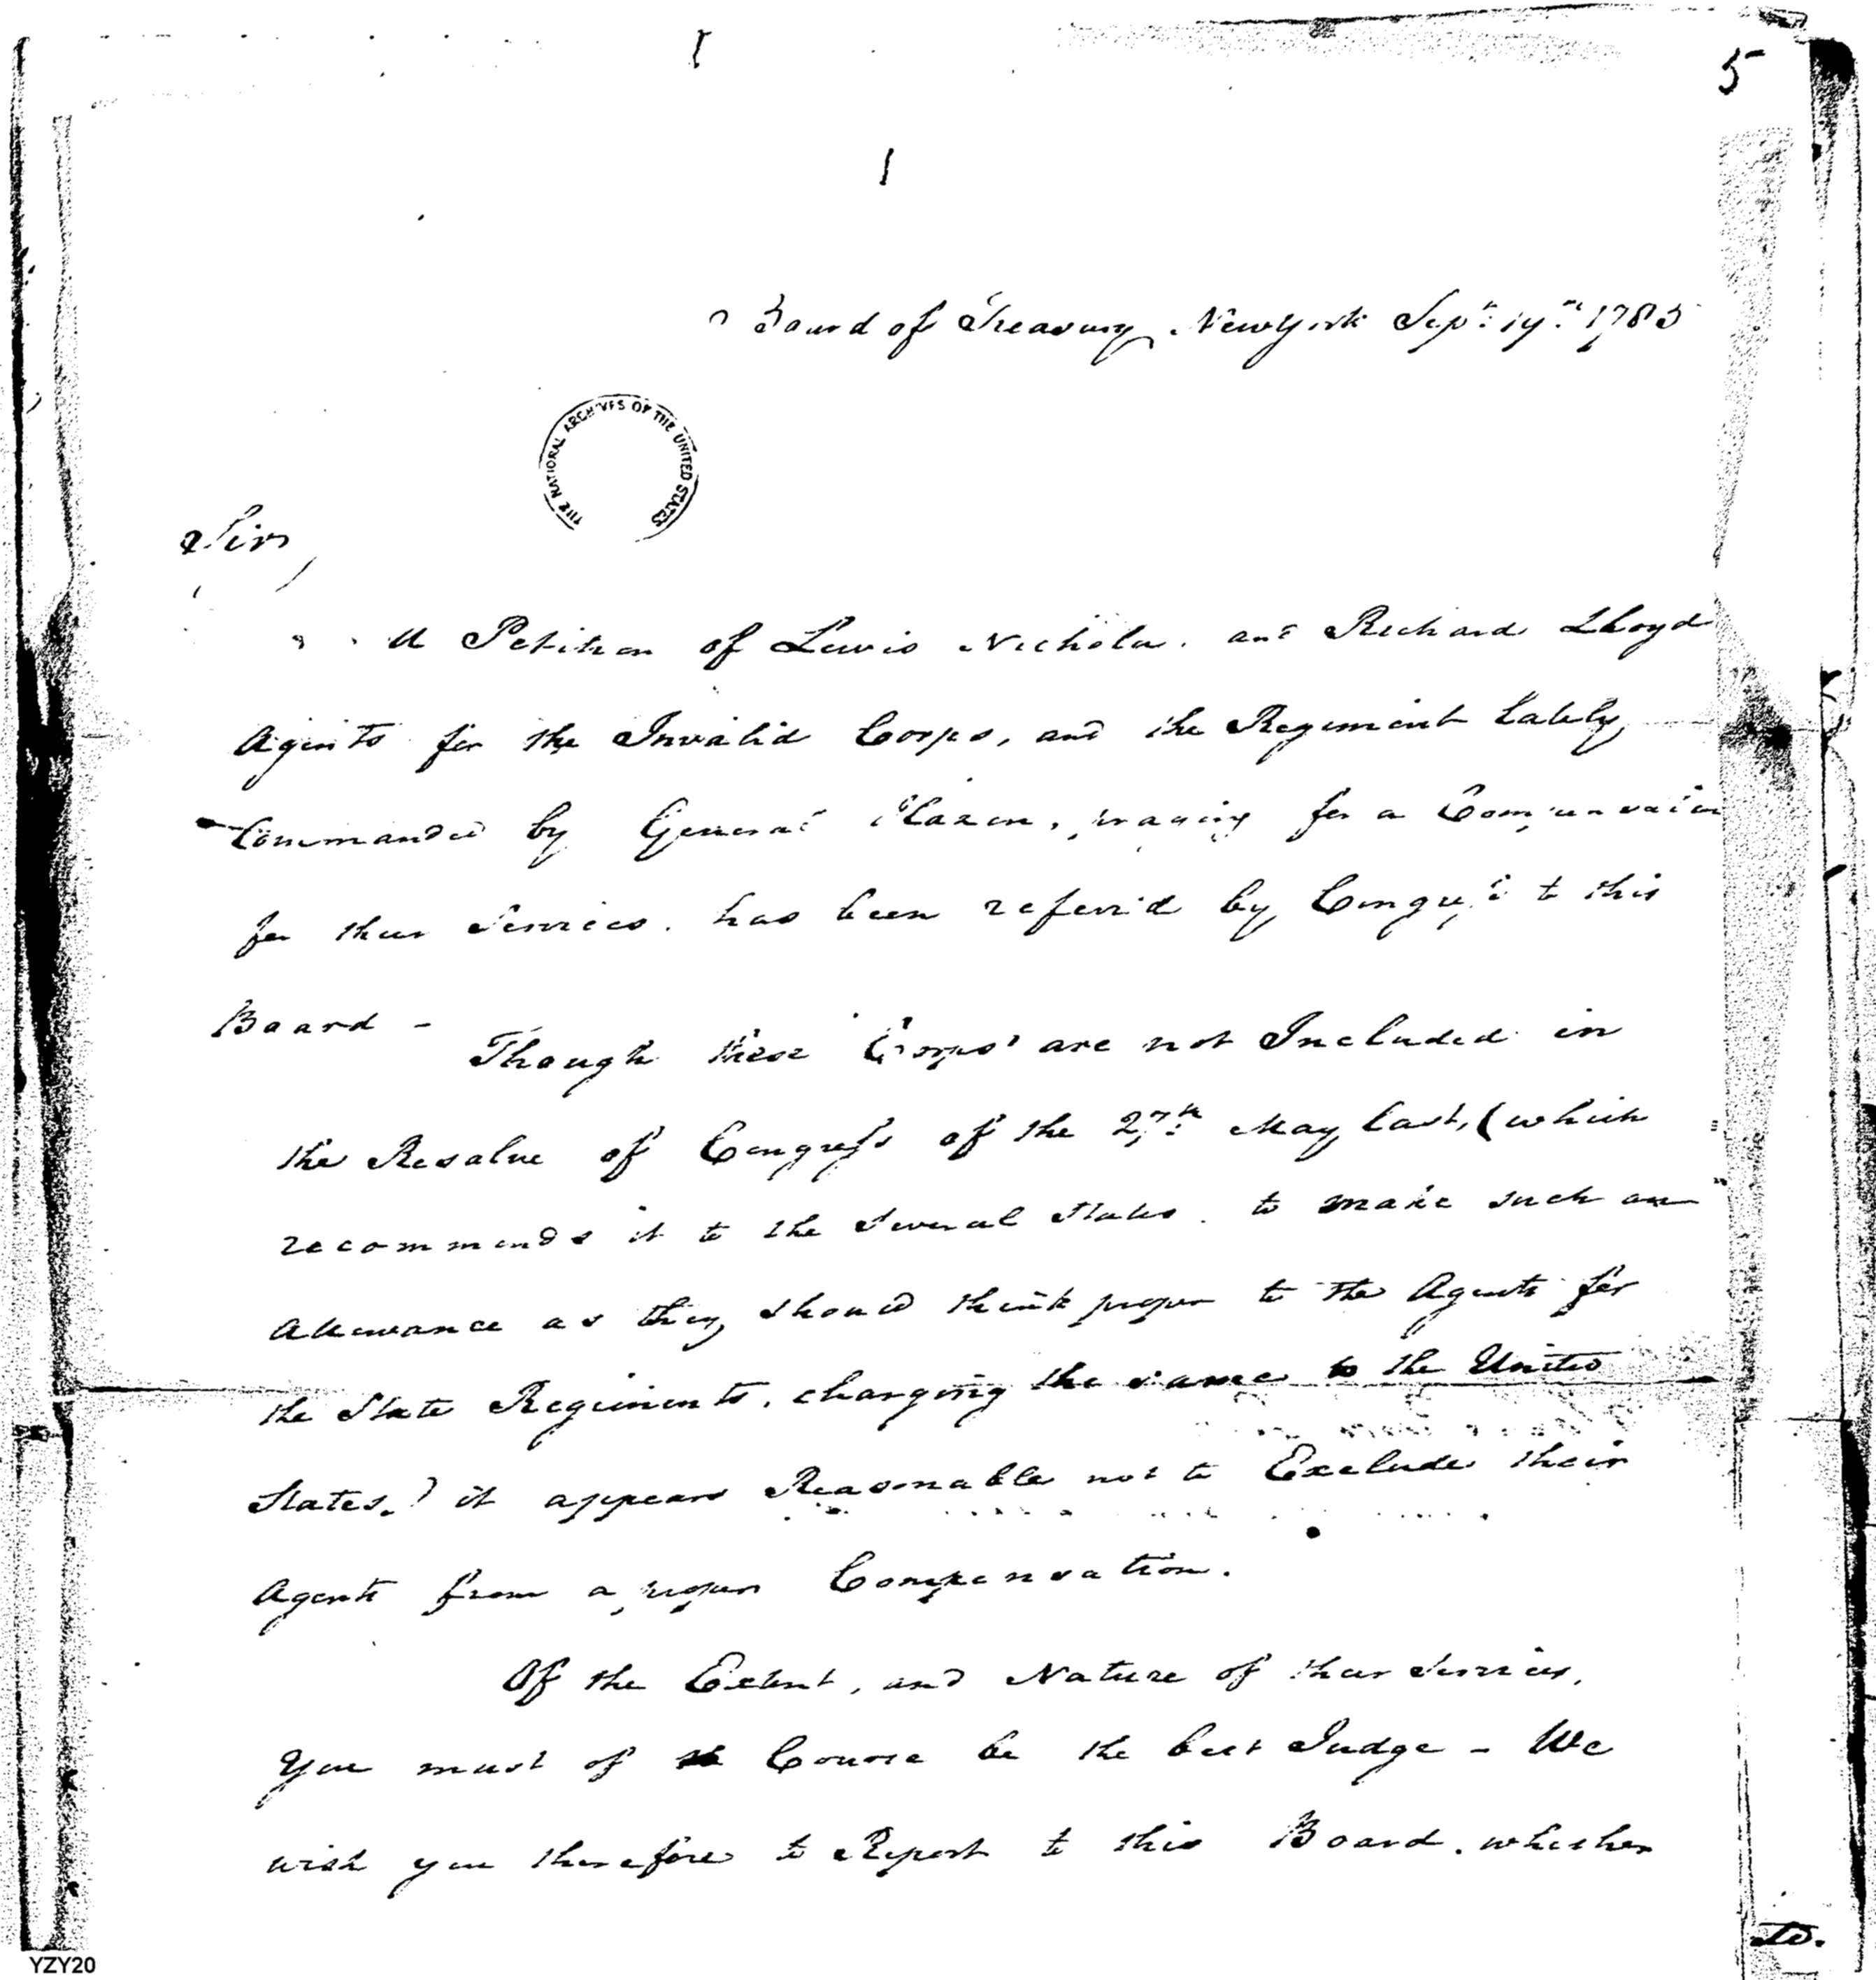 5
Board of Treasury New York Sepr. 19th. 1785
THE NATIONAL ARCHIVES OF THE UNITED STATES
Sir,
A Petition of Lewis Nichola. and Richard Lloyd
Agents for the Invalid Corps, and the Regiment lately
Commanded by General Hazen, praying for a Compensation
for their Services. has been referr'd by Congress to this
Board -
Though these Corps are not Included in
the Resolve of Congress of the 27th. May last, (which
recommends it to the Several States. to make such an
Allowance as they should think proper to the Agents for
the State Regiments, charging the same to the United
States.) it appears Reasonable not to Exclude their
Agents from a proper Compensation.
Of the Extent, and Nature of their Services,
You must of Course be the best Judge - We
wish you therefore to Report to this Board. whether
YZY20